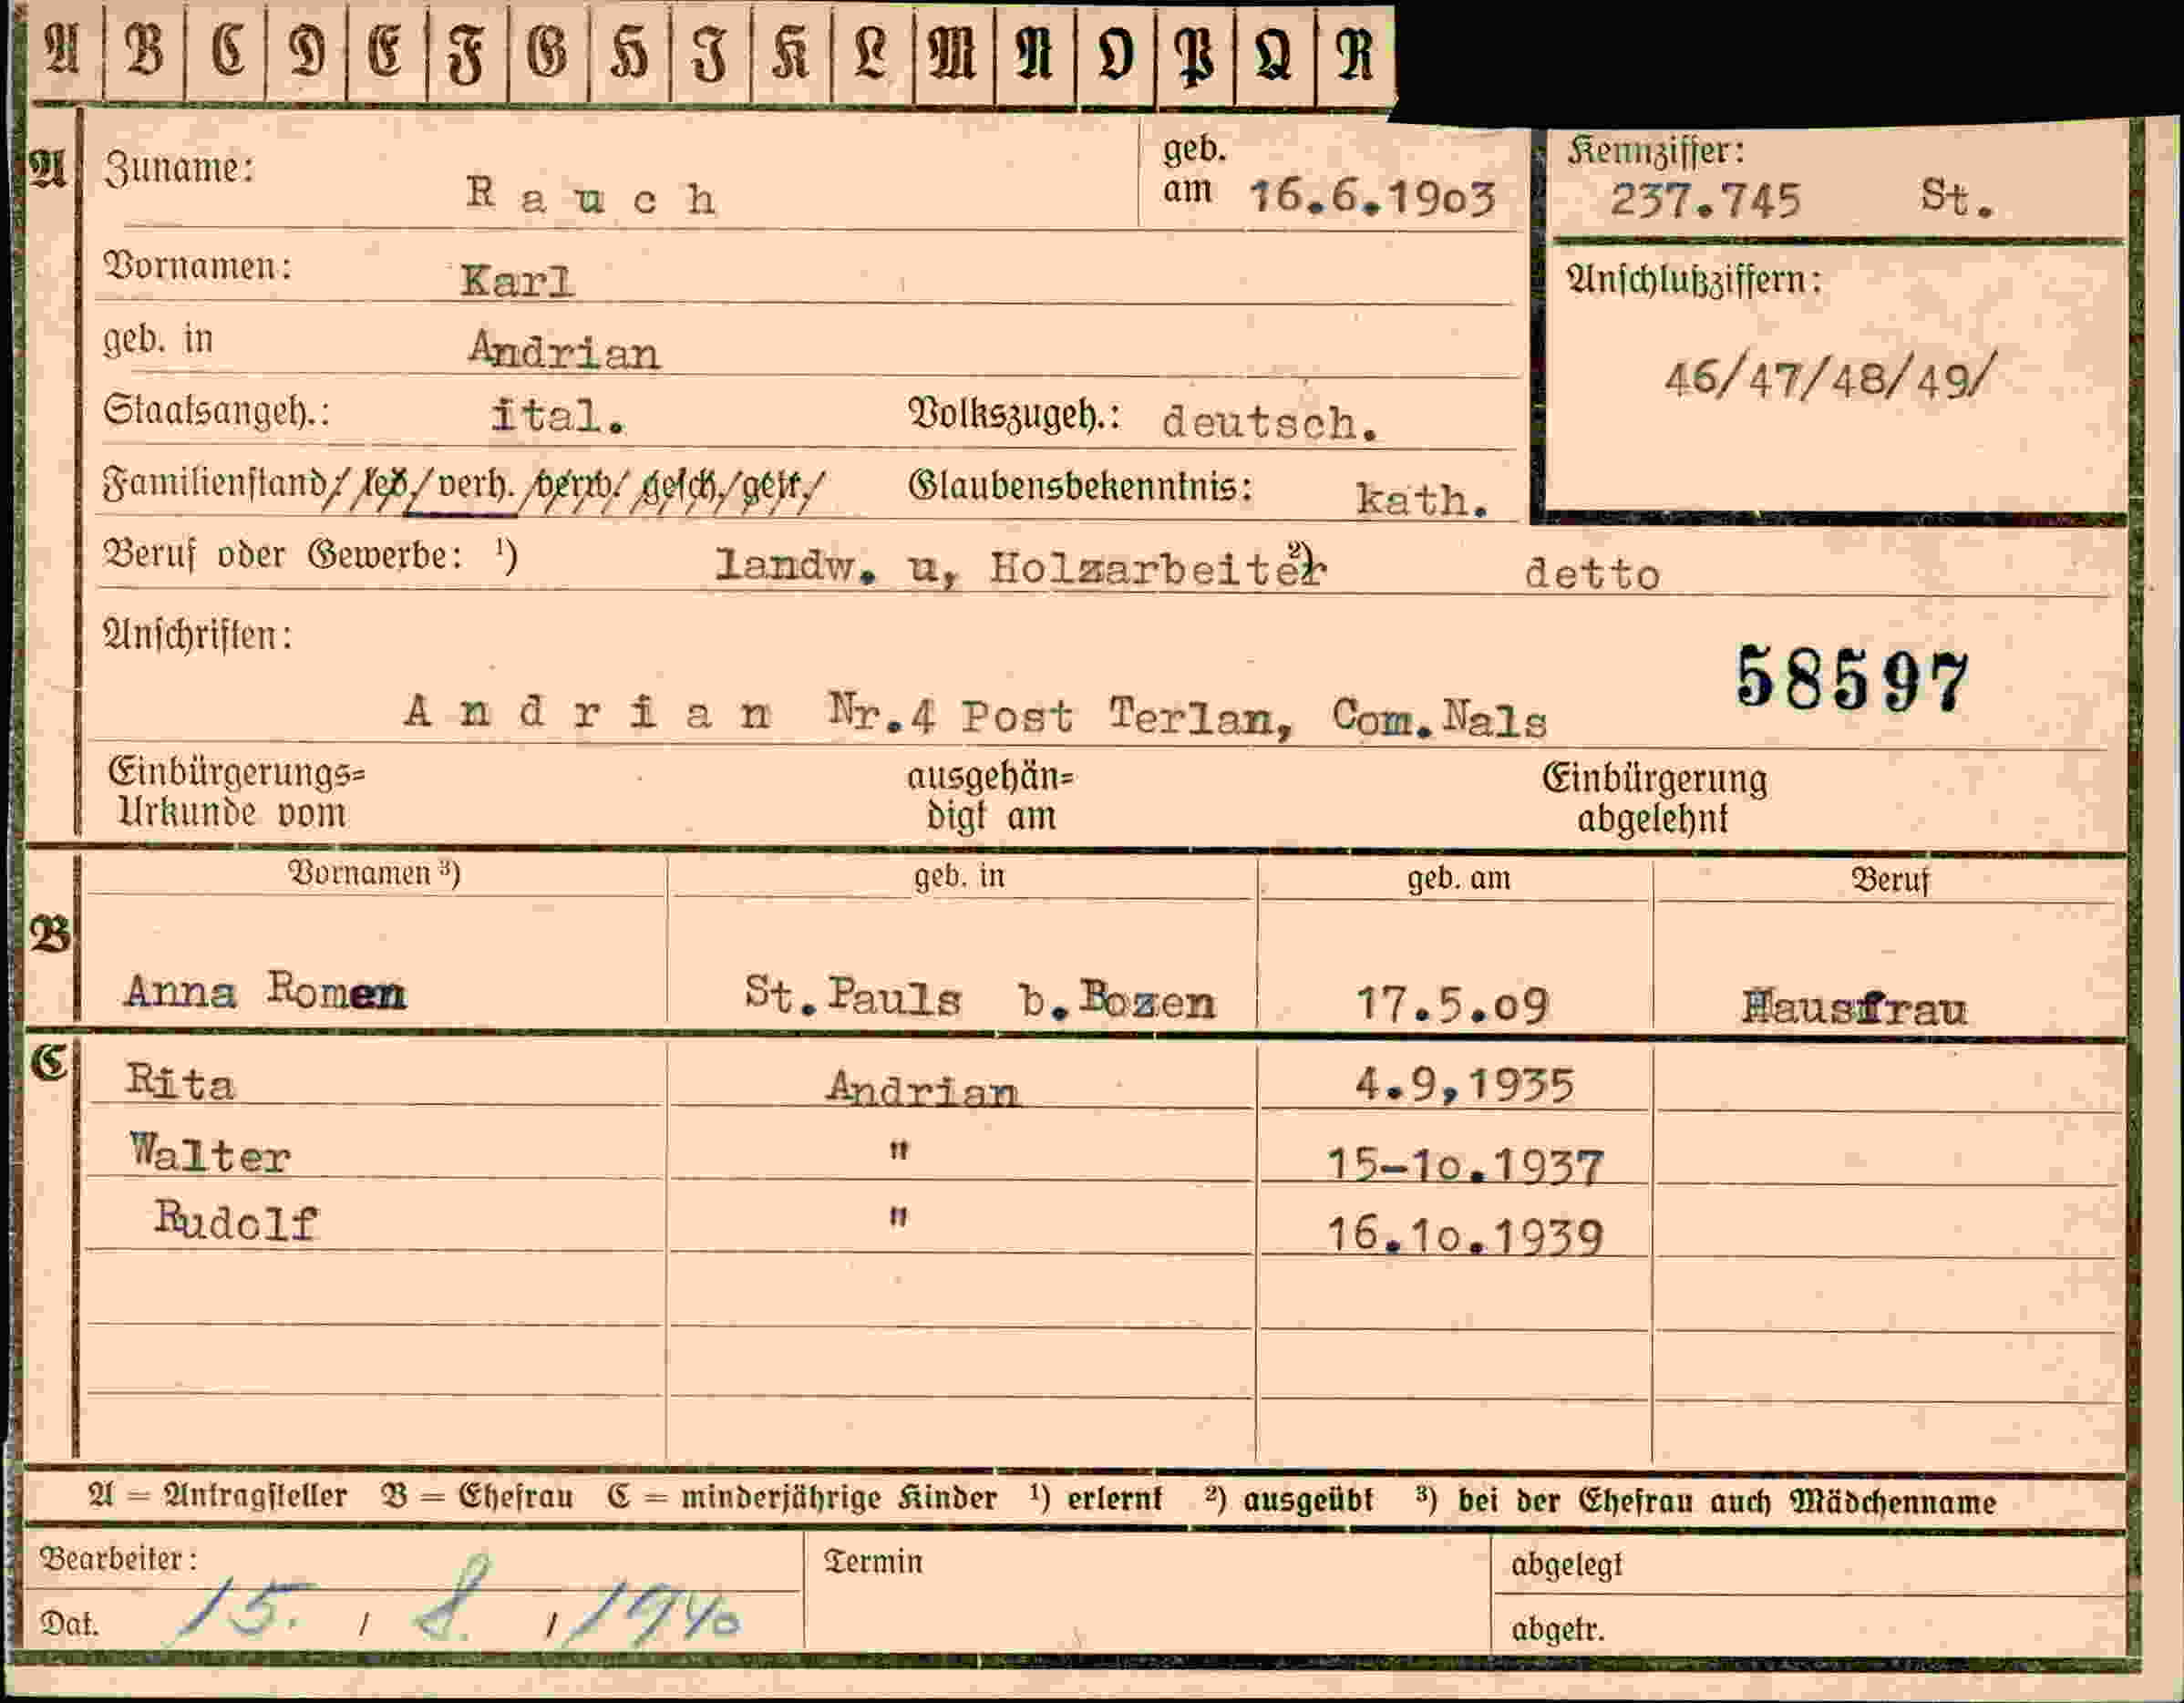 A B C D E F G H I K L M N O P Q R
A Zuname: Rauch geb. am 16.6.1903 Kennziffer: 237.745 St.
Vornamen: Karl
Anschlußziffern:
geb. in Andrian
46/47/48/49/
Staatsangeh.: ital. Volkszugeh.: deutsch.
Familienstand/ led./verh./verw./gesch./getr./ Glaubensbekenntnis: kath.
Beruf oder Gewerbe: ¹) landw. u, Holzarbeiter ²) detto
Anschriften:
58597
Andrian Nr.4 Post Terlan, Com.Nals
Einbürgerungs= ausgehän= Einbürgerung
Urkunde vom digt am abgelehnt
Vornamen ³) geb. in geb. am Beruf
B
Anna Romen St.Pauls b.Bozen 17.5.09 Hausfrau
C
Rita Andrian 4.9,1935
Walter " 15-10.1937
Rudolf " 16.10.1939
A = Antragsteller B = Ehefrau C = minderjährige Kinder ¹) erlernt ²) ausgeübt ³) bei der Ehefrau auch Mädchenname
Bearbeiter: Termin abgelegt
Dat. 15. / 8. / 1940 abgetr.